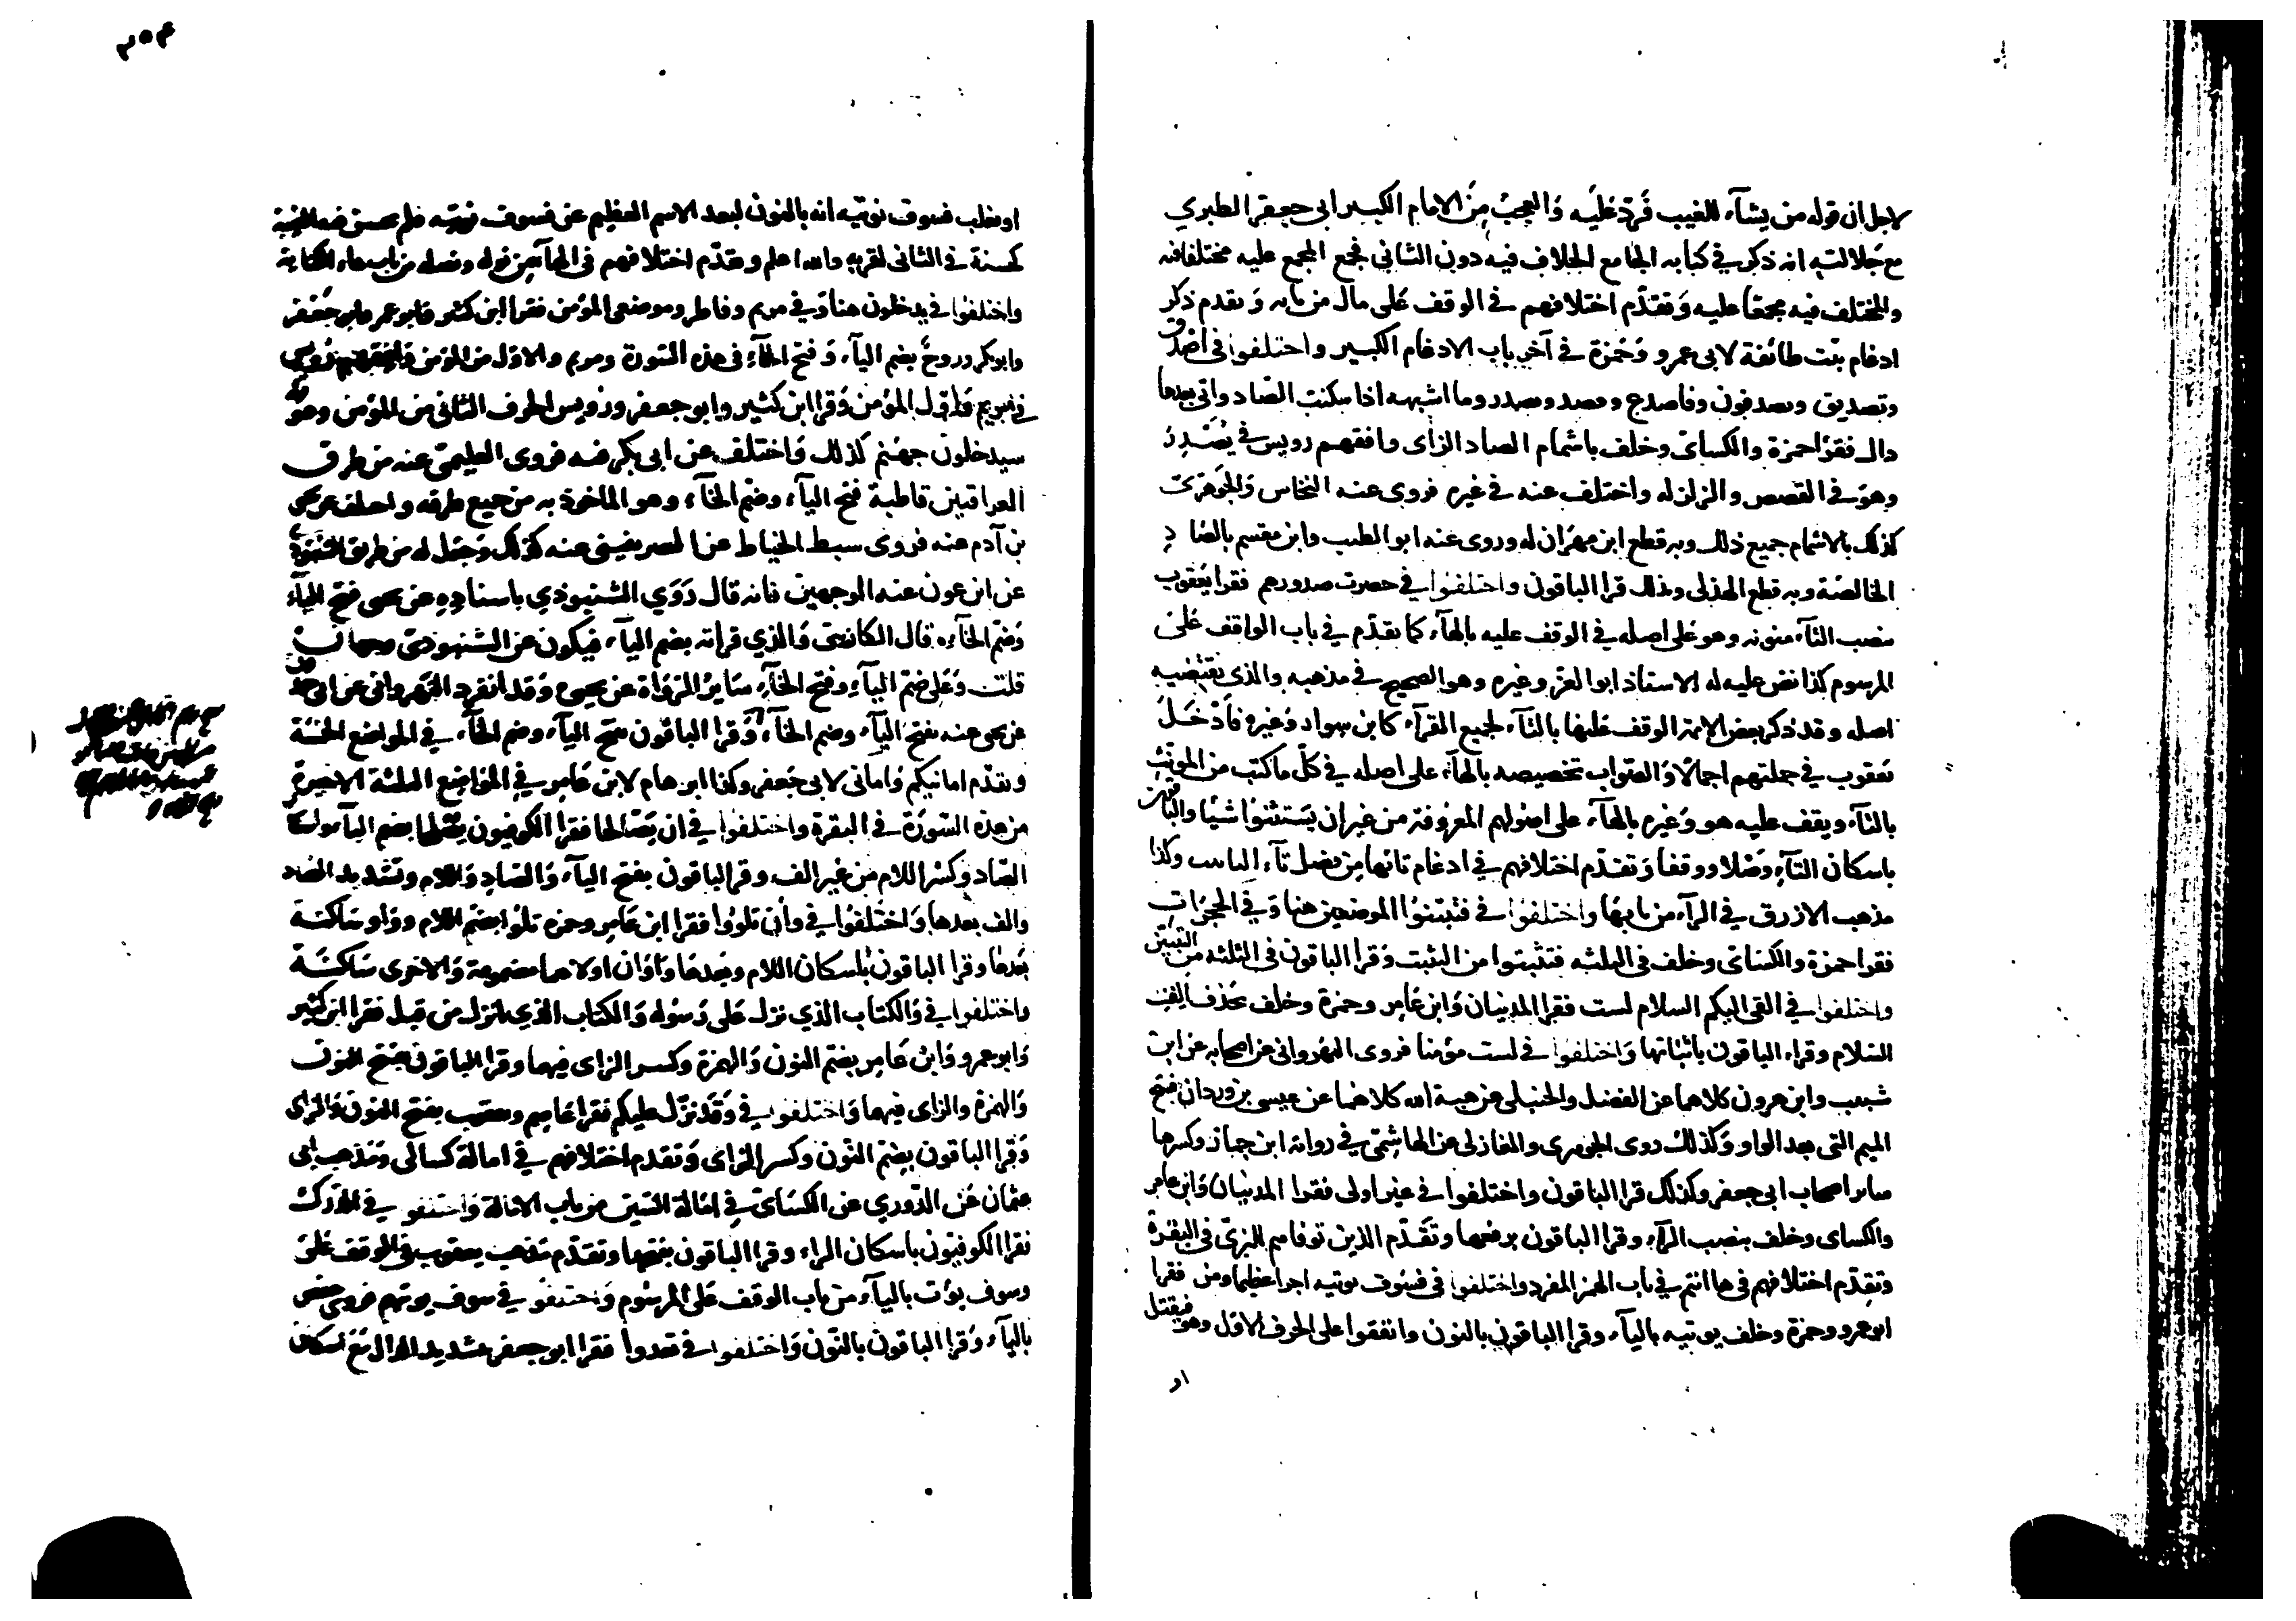 لاجل ان قوله من يشآء للغيب فردّ عليه والعجب من الامام الكبير ابى جعفر الطبري
مع جلالته انه ذكر في كتابه الجامع الخلاف فيه دون الثانى فجمع المجمع عليه مختلفا فيه
والمختلف فيه مجمعا عليه وتقدّم اختلافهم في الوقف على مال من بابه وتقدم ذكر
ادغام بيّت طائفة لابى عمرو وحمزة في آخر باب الادغام الكبير واختلفوا فى اصدق
وتصديق ويصدفون وفاصدع وقصد ويصدر وما اشبهه اذا سكنت الصاد واتى بعدها
دال فقرا حمزة والكسائى وخلف باشمام الصاد الزاى وافقهم رويس في يصدر
وهو في القصص والزلزله واختلف عنه في غيره فروى عنه النخاس والجوهرى
كذلك بالاشمام جميع ذلك وبه قطع ابن مهران له وروى عنه ابو الطيب وابن مقسم بالصاد
الخالصة وبه قطع الهذلى وبذلك قرا الباقون واختلفوا في حصرت صدورهم فقرا يعقوب
بنصب التآء منونه وهو على اصله في الوقف عليه بالهآء كما تقدّم في باب الوقف على
المرسوم كذا نص عليه له الاستاذ ابو العز وغيره وهو الصحيح في مذهبه والذى يقتضيه
اصله وقد ذكر بعض الائمة الوقف عليها بالتآء لجميع القرآء كابن سوار وغيره فادخل
يعقوب في جملتهم اجمالا والصواب تخصيصه بالهآء على اصله في كل ما كتب من المونث
بالتآء ويقف عليه هو وغيره بالهآء على اصولهم المعروفة من غير ان يستثنوا شيئا والباقون
باسكان التآء وصلا ووقفا وتقدّم اختلافهم في ادغام تائها من فصل تآء التانيث وكذا
مذهب الازرق في الرآء من بابها واختلفوا في فتبيّنوا الموضعين هنا وفي الحجرات
فقرا حمزة والكسائى وخلف فى الثلثه فتثبتوا من التثبت وقرا الباقون فى الثلثه من التبين
واختلفوا في القى اليكم السلام لست فقرا المدنيان وابن عامر وحمزة وخلف بحذف الف
السلام وقراء الباقون باثباتها واختلفوا في لست مؤمنا فروى النهروانى عن اصحابه عن ابن
شبيب وابن هرون كلاهما عن الفضل والحنبلى عن هبة الله كلاهما عن عيسى بن وردان بفتح
الميم التى بعد الواو وكذلك روى الجوهرى والمغازلى عن الهاشمى في رواية ابن جماز وكسرها
سائر اصحاب ابى جعفر وكذلك قرا الباقون واختلفوا في غير اولى فقرا المدنيان وابن عامر
والكسائى وخلف بنصب الرآء وقرا الباقون برفعها وتقدّم الذين توفاهم للبزى فى البقرة
وتقدّم اختلافهم في ها انتم في باب الهمز المفرد واختلفوا فى فسوف نوتيه اجرا عظيما ومن فقرا
ابو عمرو وحمزة وخلف يوتيه باليآء وقرا الباقون بالنون واتفقوا على الحرف الاوّل وهو فيقتل
او
٢٥٤
او يغلب فسوف نوتيه انه بالنون لبعد الاسم العظيم عن فسوف نوتيه فلم يحسن فيه الغيبة
كحسنه في الثانى لقربه والله اعلم وتقدّم اختلافهم في الهآء من نوله ونصله من باب هاء الكناية
واختلفوا في يدخلون هنا وفي مريم وفاطر وموضعى المؤمن فقرا ابن كثير وابو عمرو وابو جعفر
وابو بكر وروح بضم اليآء وفتح الخآء فى هذه السورة ومريم والاول من المؤمن وافقهم رويس
في مريم واول المؤمن وقرا ابن كثير وابو جعفر ورويس الحرف الثانى من المؤمن وهو
سيدخلون جهنم كذلك واختلف عن ابى بكر فيه فروى العليمى عنه من طرق
العراقيين قاطبة فتح اليآء وضم الخآء وهو الماخوذ به من جميع طرقه واختلف عن يحيى
بن آدم عنه فروى سبط الخياط عن الصريفينى عنه كذلك وجعل له من طريق الشنبوذى
عن ابى عون عنه الوجهين فانه قال روى الشنبوذي باسناده عن يحيى فتح اليآء
وضم الخآء قال الكارزينى والذي قراته بضم اليآء فيكون عن الشنبوذى وجهان
قلت وعلى ضم اليآء وفتح الخآء سائر الرواة عن يحيى وقد انفرد النهروانى عن ابى حمدون
عن يحيى عنه بفتح اليآء وضم الخآء وقرا الباقون بفتح اليآء وضم الخآء في المواضع الخمسة
وتقدّم امانيكم وامانى لابى جعفر وكذا ابرهام لابن عامر في المواضع الثلثة الاخيرة
من هذه السورة في البقرة واختلفوا في ان يصّالحا فقرا الكوفيون يصلحا بضم اليآء واسكان
الصاد وكسر اللام من غير الف وقرا الباقون بفتح اليآء والصاد واللام وتشديد الصاد
والف بعدها واختلفوا في وان تلوا فقرا ابن عامر وحمزة تلوا بضم اللام وواو ساكنة
بعدها وقرا الباقون باسكان اللام وبعدها واوان اولاهما مضمومة والاخرى ساكنة
واختلفوا في والكتاب الذي نزل على رسوله والكتاب الذي انزل من قبل فقرا ابن كثير
وابو عمرو وابن عامر بضم النون والهمزة وكسر الزاى فيهما وقرا الباقون بفتح النون
والهمزة والزاى فيهما واختلفوا في وقد نزّل عليكم فقرا عاصم ويعقوب بفتح النون والزاى
وقرا الباقون بضم النون وكسر الزاى وتقدم اختلافهم في امالة كسالى ومذهب ابى
عثمان عن الدوري عن الكسائى في امالة السين من باب الامالة واختلفوا في الدرك
فقرا الكوفيون باسكان الراء وقرا الباقون بفتحها وتقدّم مذهب يعقوب في الوقف على
وسوف يؤت باليآء من باب الوقف على المرسوم واختلفوا في سوف يوتيهم فروى حفص
باليآء وقرا الباقون بالنون واختلفوا في تعدوا فقرا ابو جعفر بتشديد الدال مع اسكان